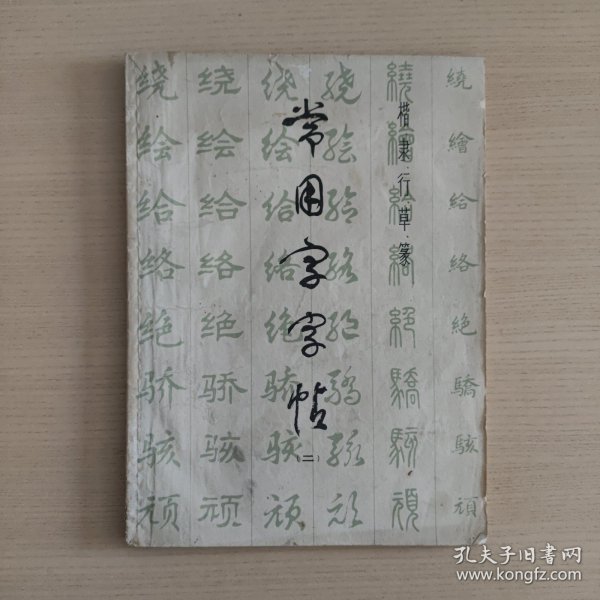 常用字字帖
（二）
楷、隶、行、草、篆
绕绘给络绝骄骇
绕绘给络绝骄骇
绕绘给络绝骄骇
繞繪給絡絕驕駭
繞繪給絡絕驕駭
繞繪給絡絕驕駭
孔夫子旧书网
www.kongfz.com